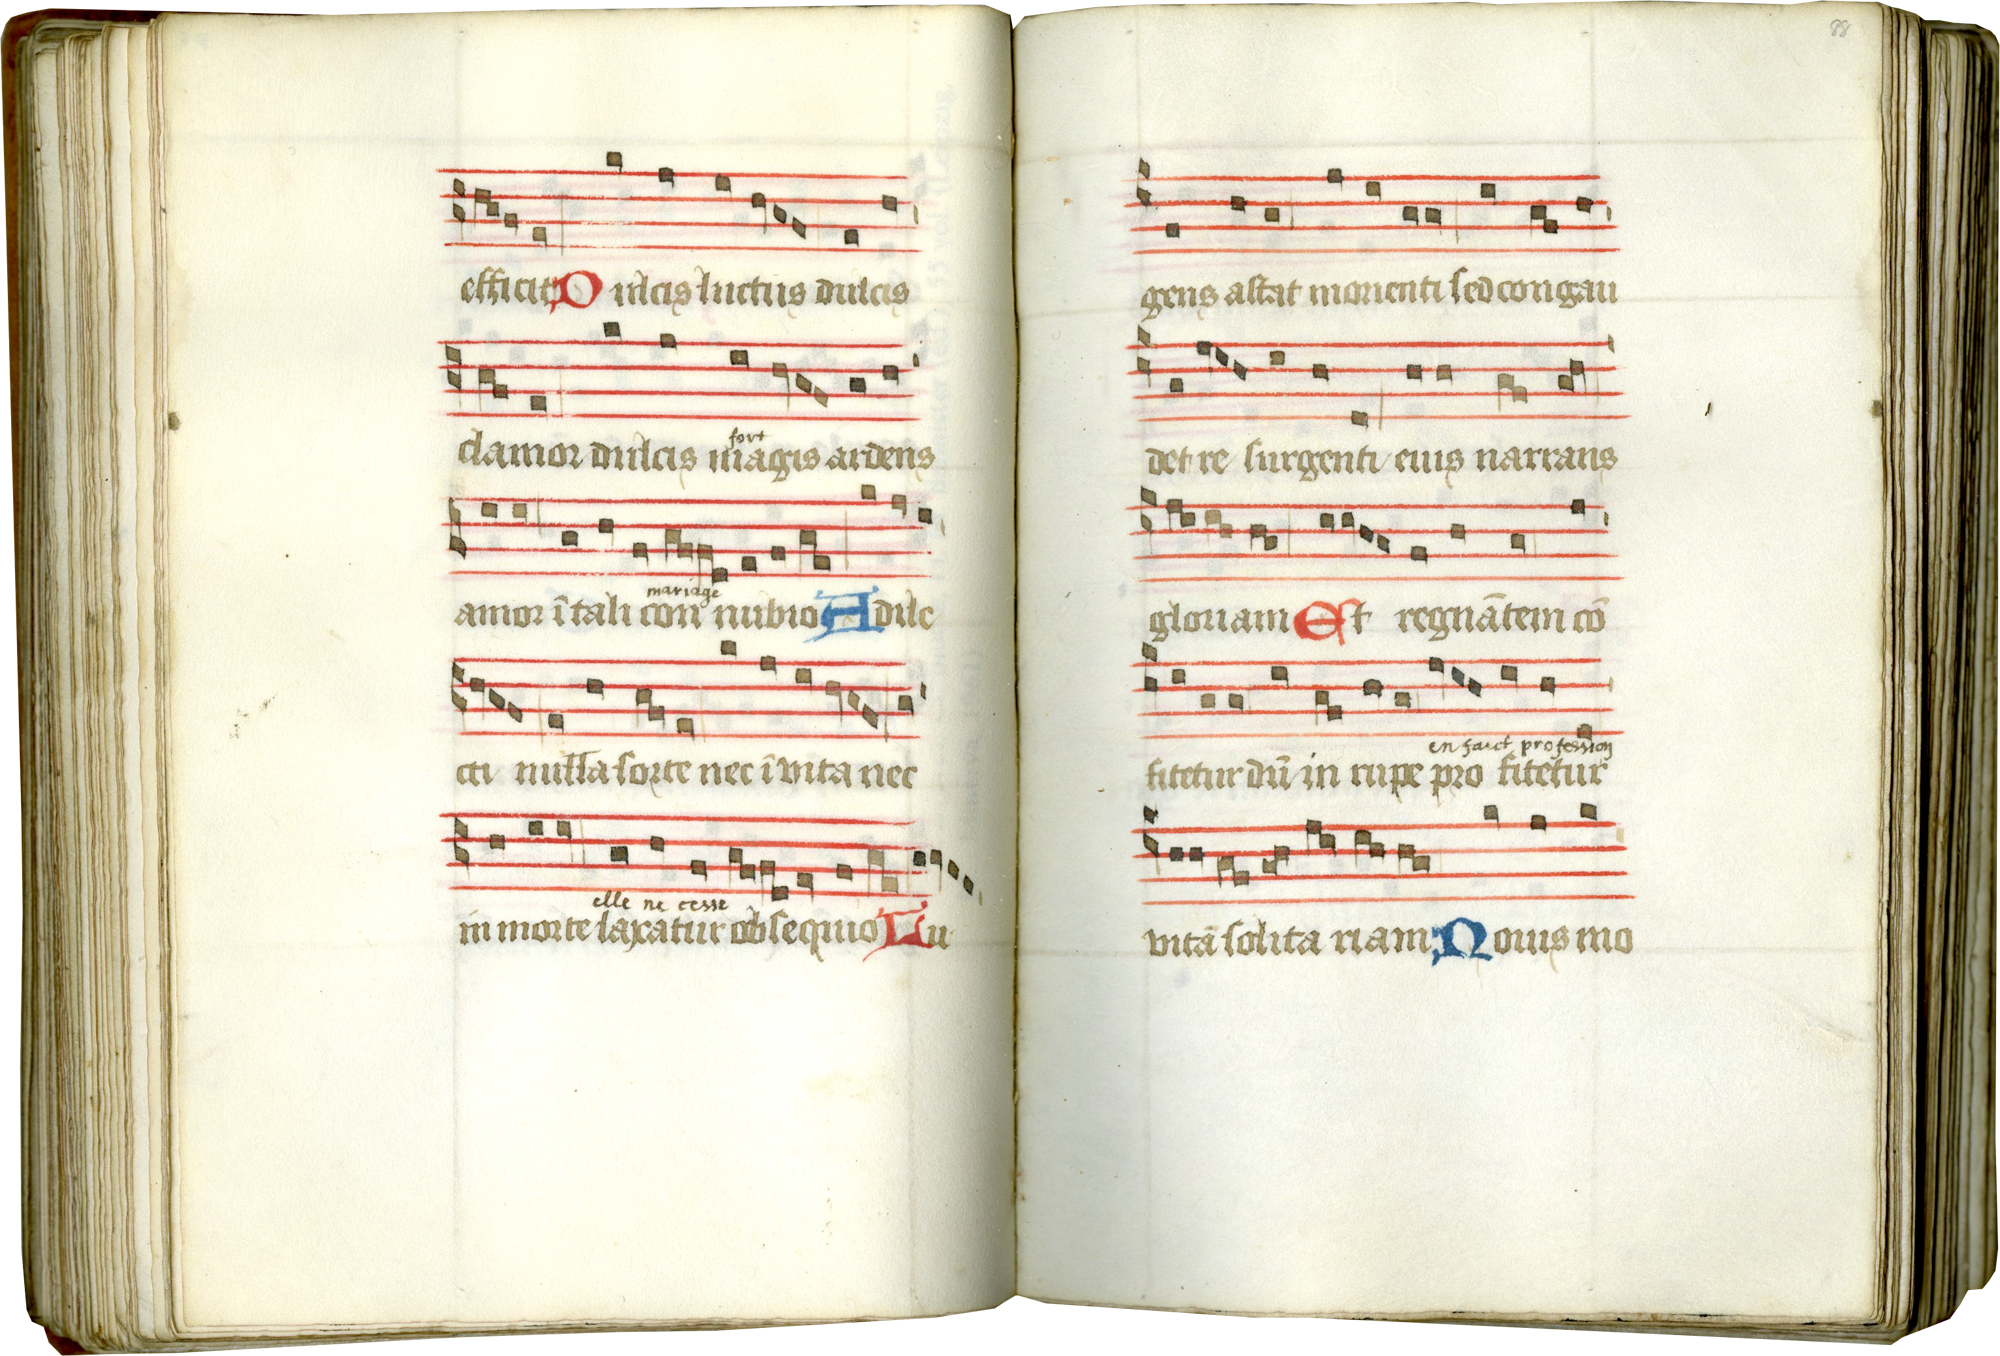 efficit Dulcis luctus dulcis
fort
clamor dulcis magis ardens
amor ī tali con nubio A dilc
mariage
cti nulla sorte nec ī vita nec
elle ne cesse
in morte laxatur obsequio Lu
88
gens astat morienti sed congau
det re surgenti eius narrans
gloriam Est regnātem cō
en faict profession
fitetur dū in rupe pro fitetur
vitā solita riam Nouis mo